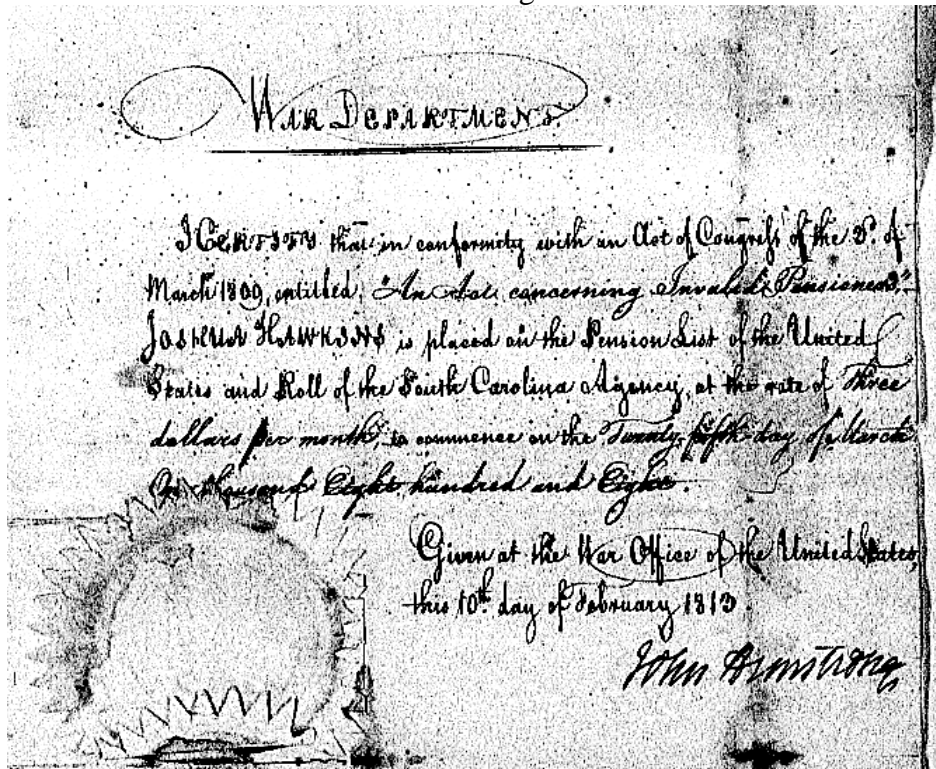 WAR DEPARTMENT.
I CERTIFY that in conformity with an Act of Congress of the 3d. of
March 1809, entitled, "An Act concerning Invalid Pensioners,"
JOSHUA HAWKINS is placed on the Pension List of the United
States and Roll of the South Carolina Agency, at the rate of Three
dollars per month, to commence on the Twenty-fifth day of March
One thousand Eight hundred and Eight.
Given at the War Office of the United States,
this 10th. day of February 1813.
John Armstrong